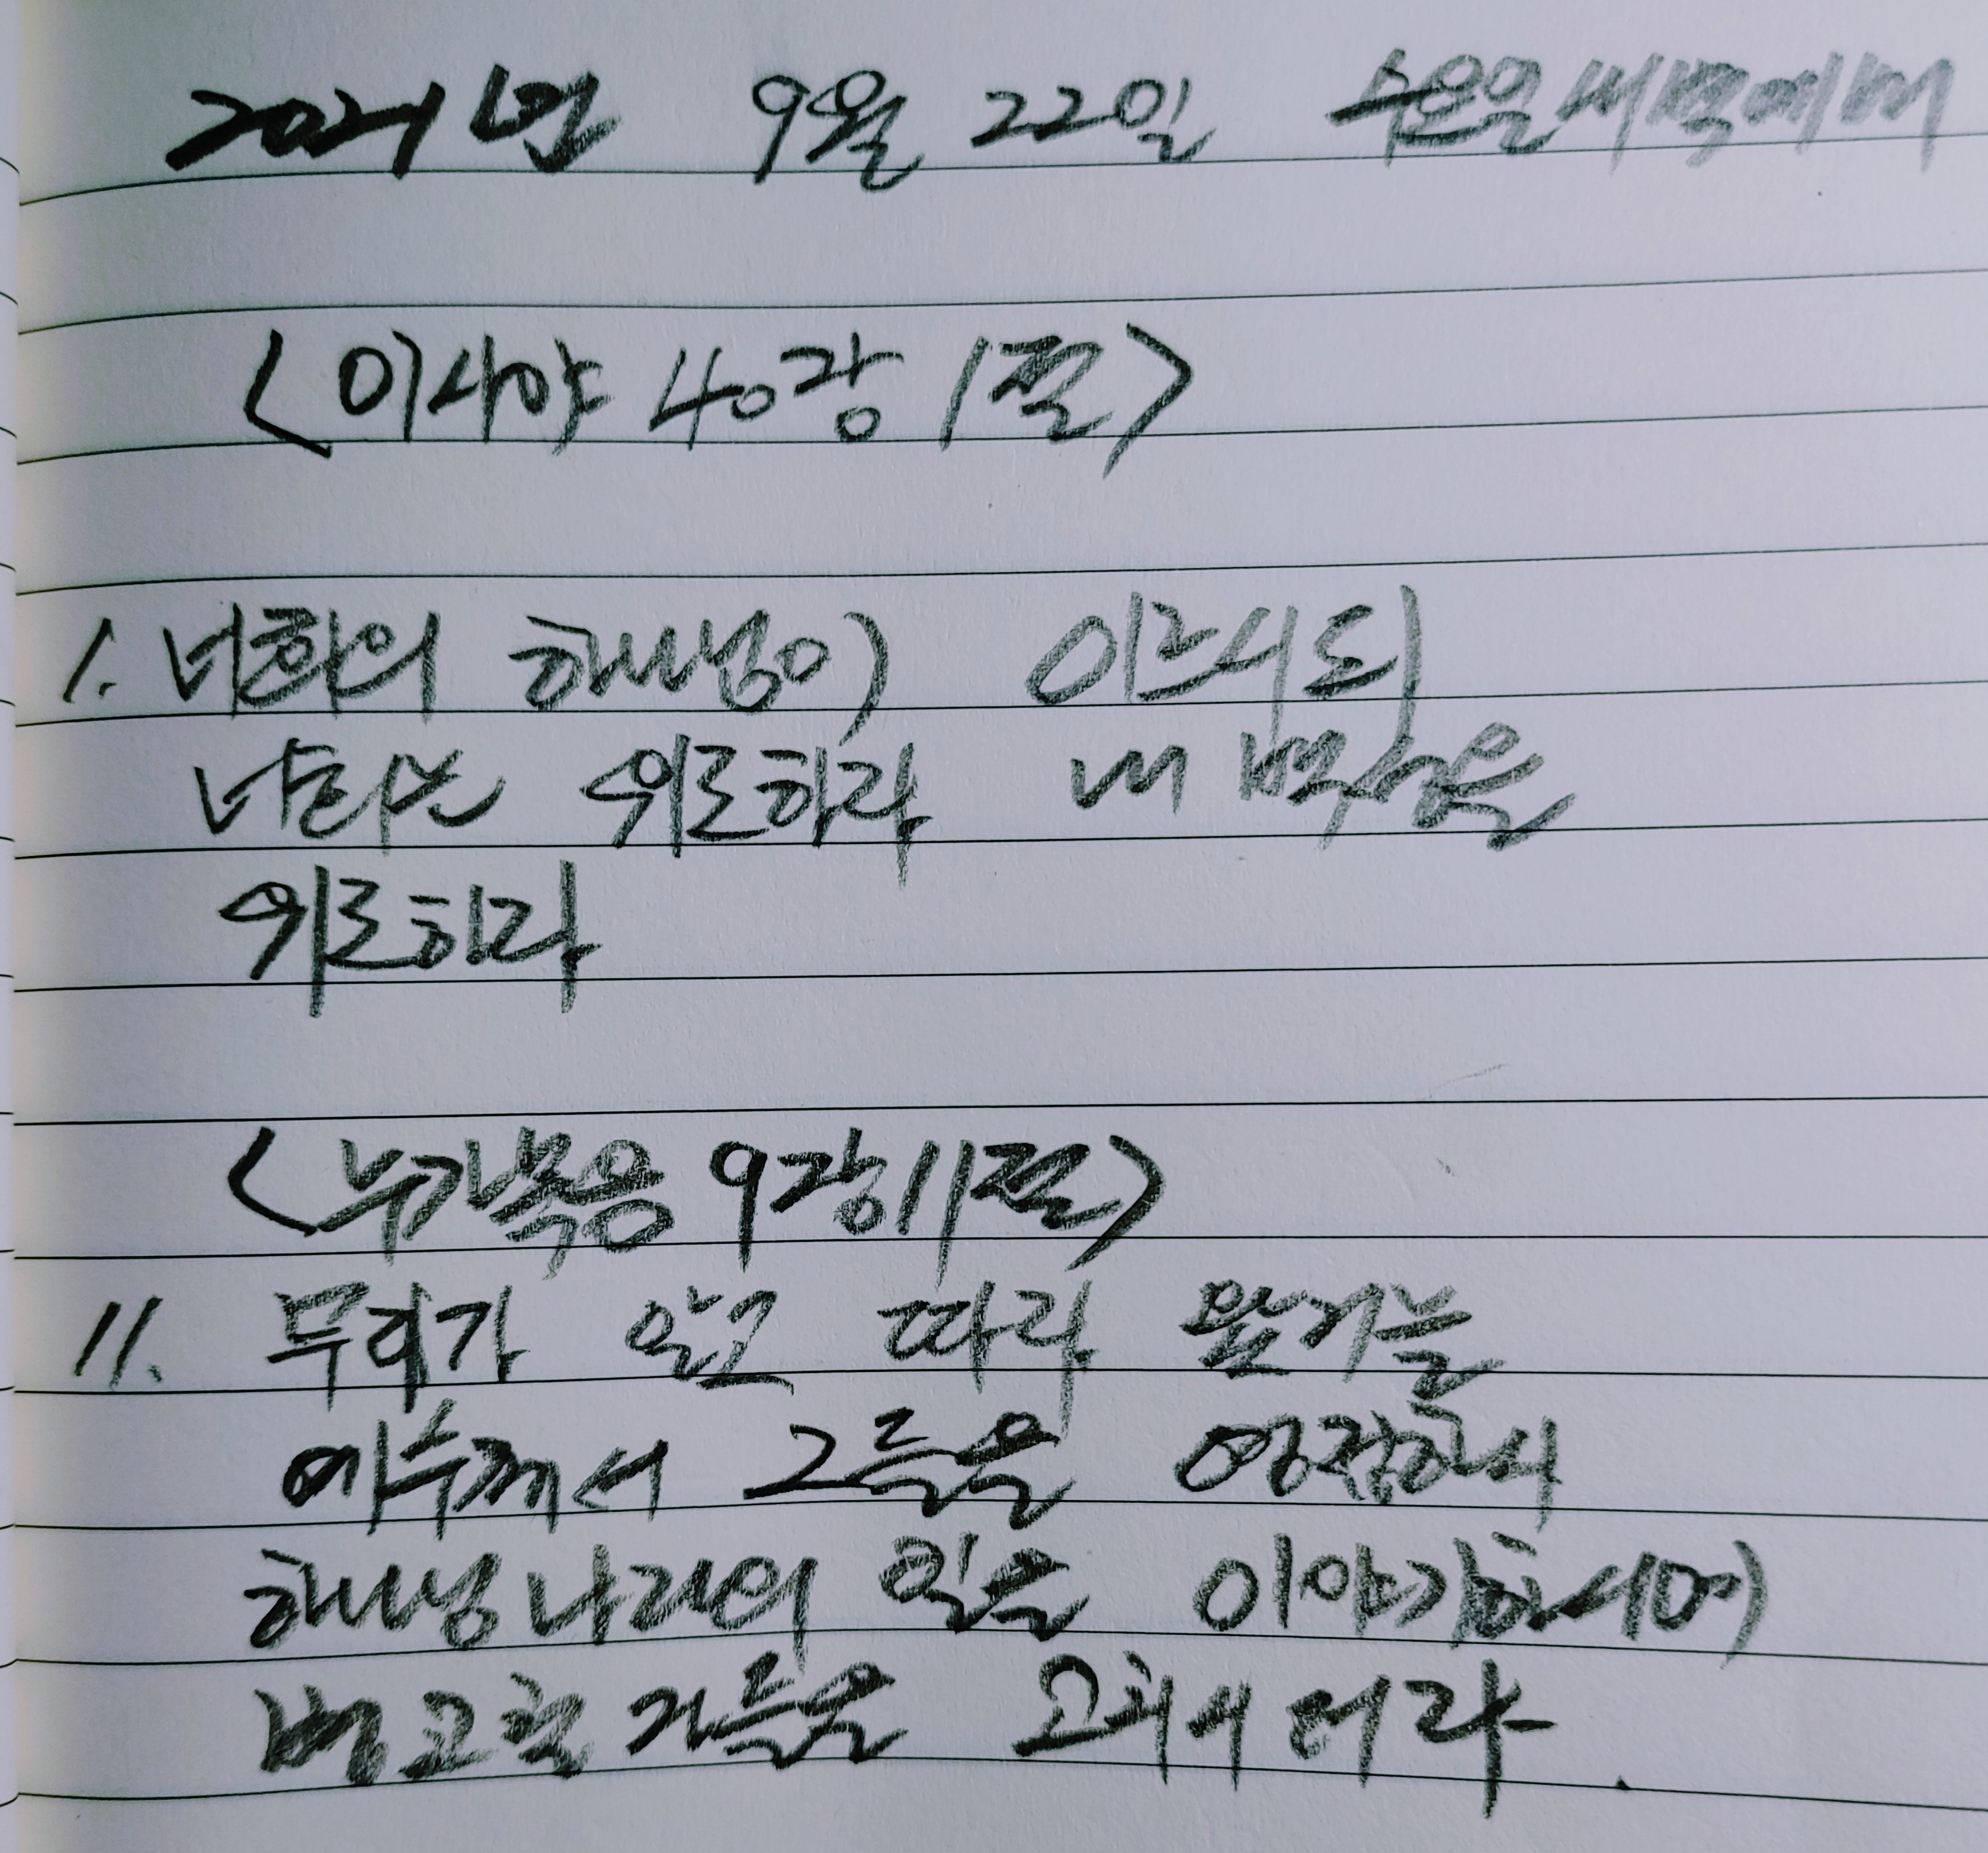 2021년 9월 22일 수요일새벽예배
<이사야 40장 1절>
1. 너희의 하나님이 이르시되
너희는 위로하라 내 백성을
위로하라
<누가복음 9장11절>
11. 무리가 알고 따라 왔거늘
예수께서 그들을 영접하사
하나님나라의 일을 이야기하시며
병고칠자들을 고치시더라.